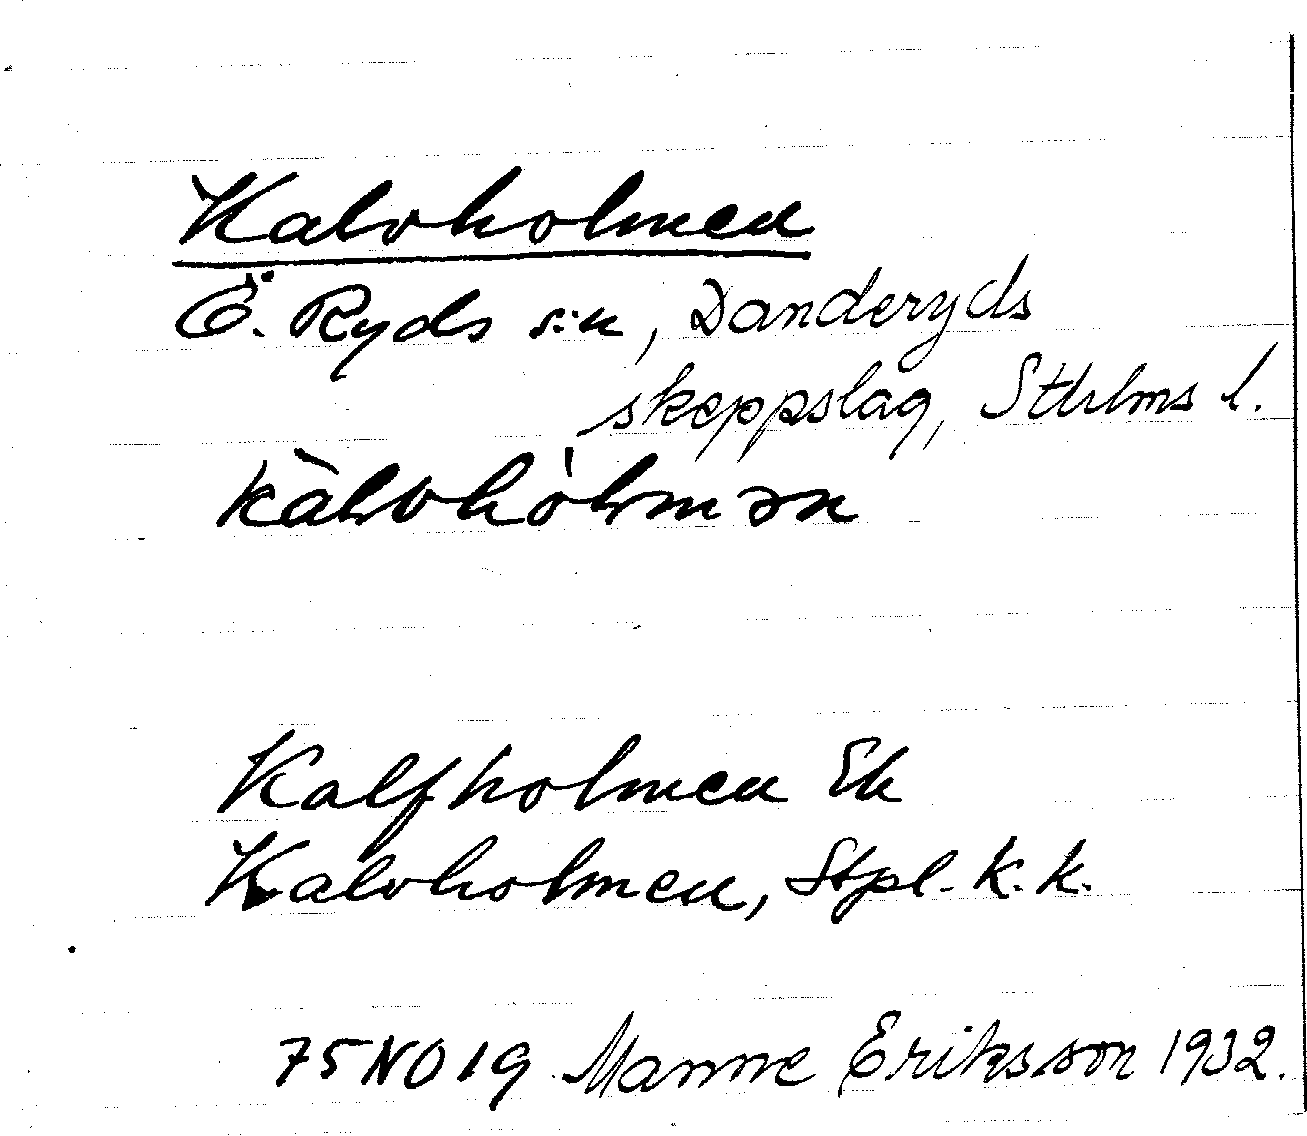 Kalvholmen
Ö. Ryds s:n, Danderyds
skeppslag, Sthlms l.
kàlvhòlmən
Kalfholmen Ek
Kalvholmen, Stpl. K. k.
75 NO 19 Manne Eriksson 1932.